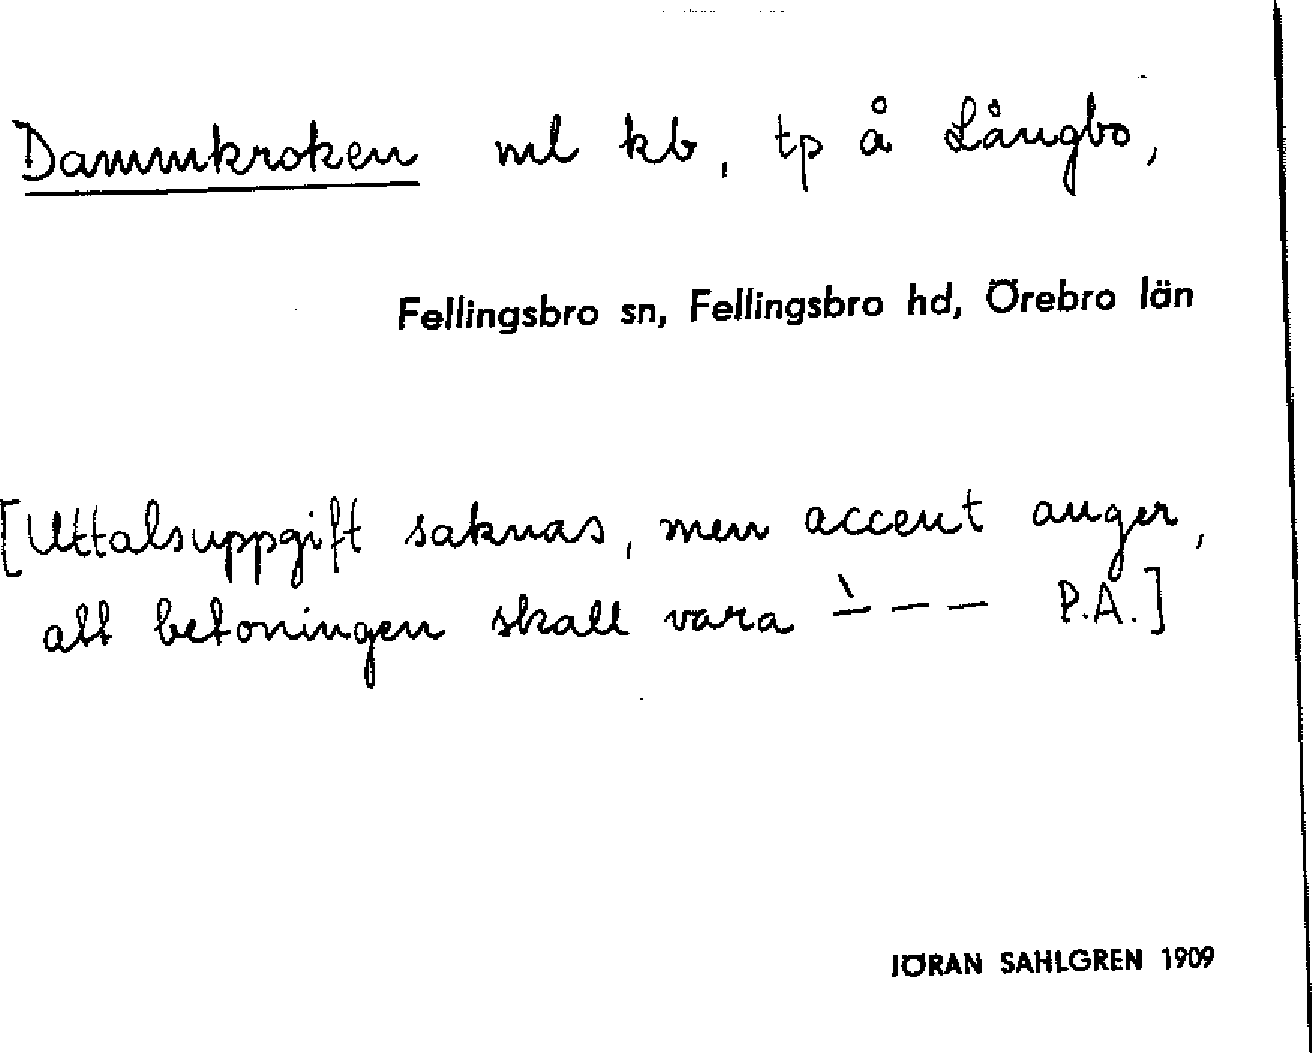 Dammkroken ml kb, tp å Långbo,
Fellingsbro sn, Fellingsbro hd, Örebro län
[Uttalsuppgift saknas, men accent anger,
att betoningen skall vara _̀ _ _ _ P.A.]
JÖRAN SAHLGREN 1909